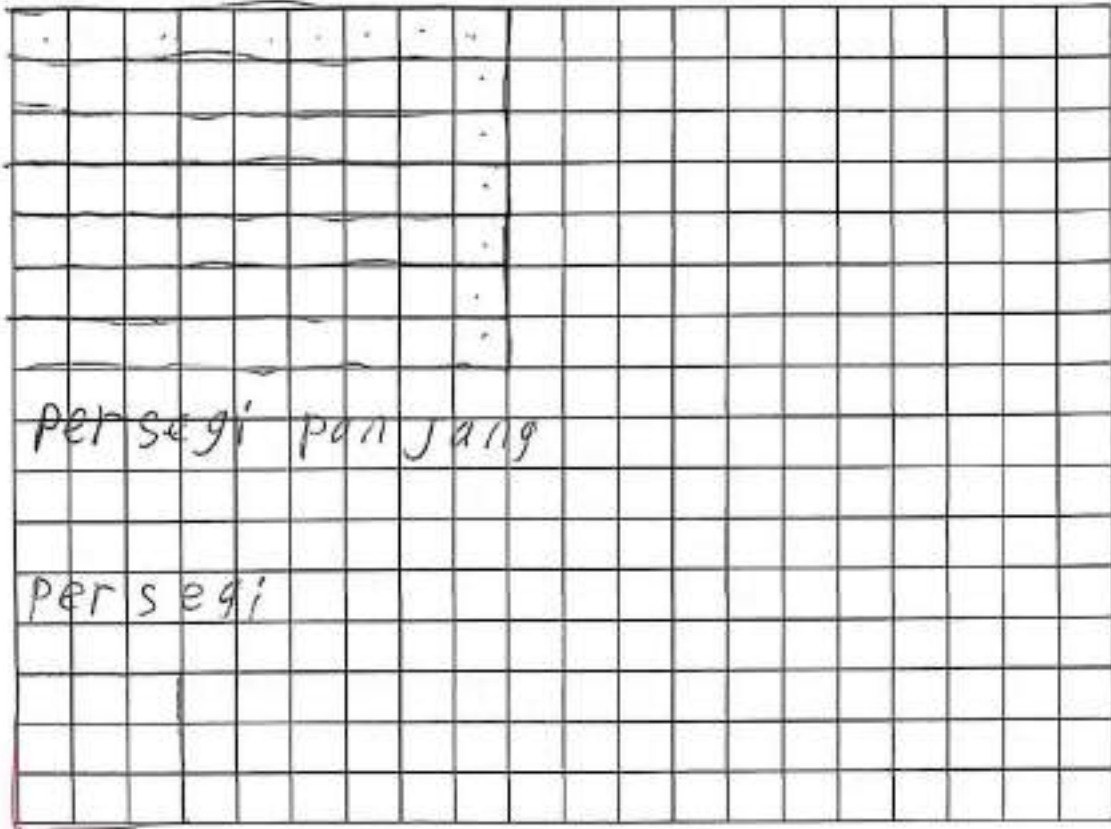 persegi panjang
persegi